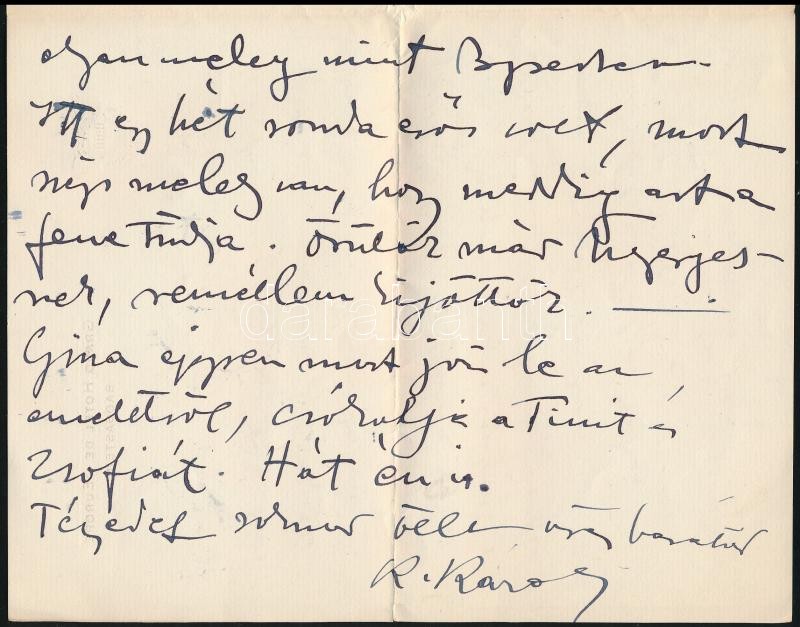 olyan meleg mint Bpesten.
Itt egy hét ronda esős volt, most
négy meleg van, hogy meddig azt a
fene tudja. Örülök már
nek, remélem feljöttök.
Gina éppen most jön le az
emeletről, csókolja a Timit és
Zsófiát. Hát én is.
Téged sokszor ölel öreg barátod
R. Károly
darabanth